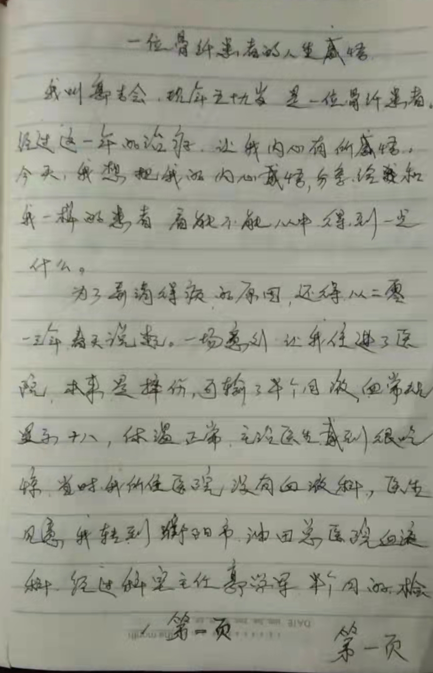 一位骨纤患者的人生感悟
我叫郭吉会，现年五十九岁 是一位骨纤患者。
经过这一年的治疗，让我内心有所感悟，
今天，我想把我的内心感悟，分享给我和
我一样的患者 看能不能从中得到一点
什么。
为了弄清得病的原因，还得从二零
一三年春天说起。一场意外 让我住进了医
院，本来是摔伤，可输了半个月液，血常规
显示十八，体温正常，主治医生感到很吃
惊，当时我所住医院 没有血液科，医生
见意我转到 市油田总医院血液
科，经过科室主任郭学军半个月的检
第一页
第一页
DATE